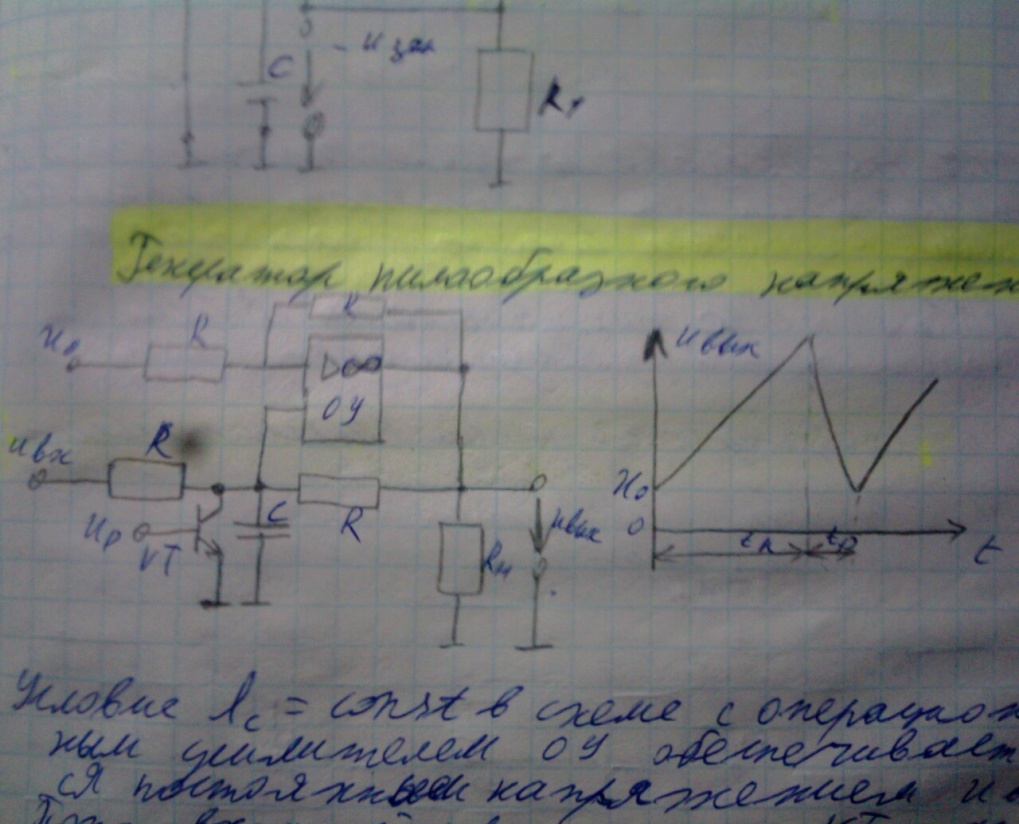 C
- U зап
Rн
Генератор пилообразного напряжен
R
U0
R
▷∞
ОУ
Uвх
R
C
R
Uр
VT
Rн
Uвых
Uвых
U0
0
tп
tр
t
Условие Ic = const в схеме с операцион
ным усилителем ОУ обеспечивает
ся постоянным напряжением